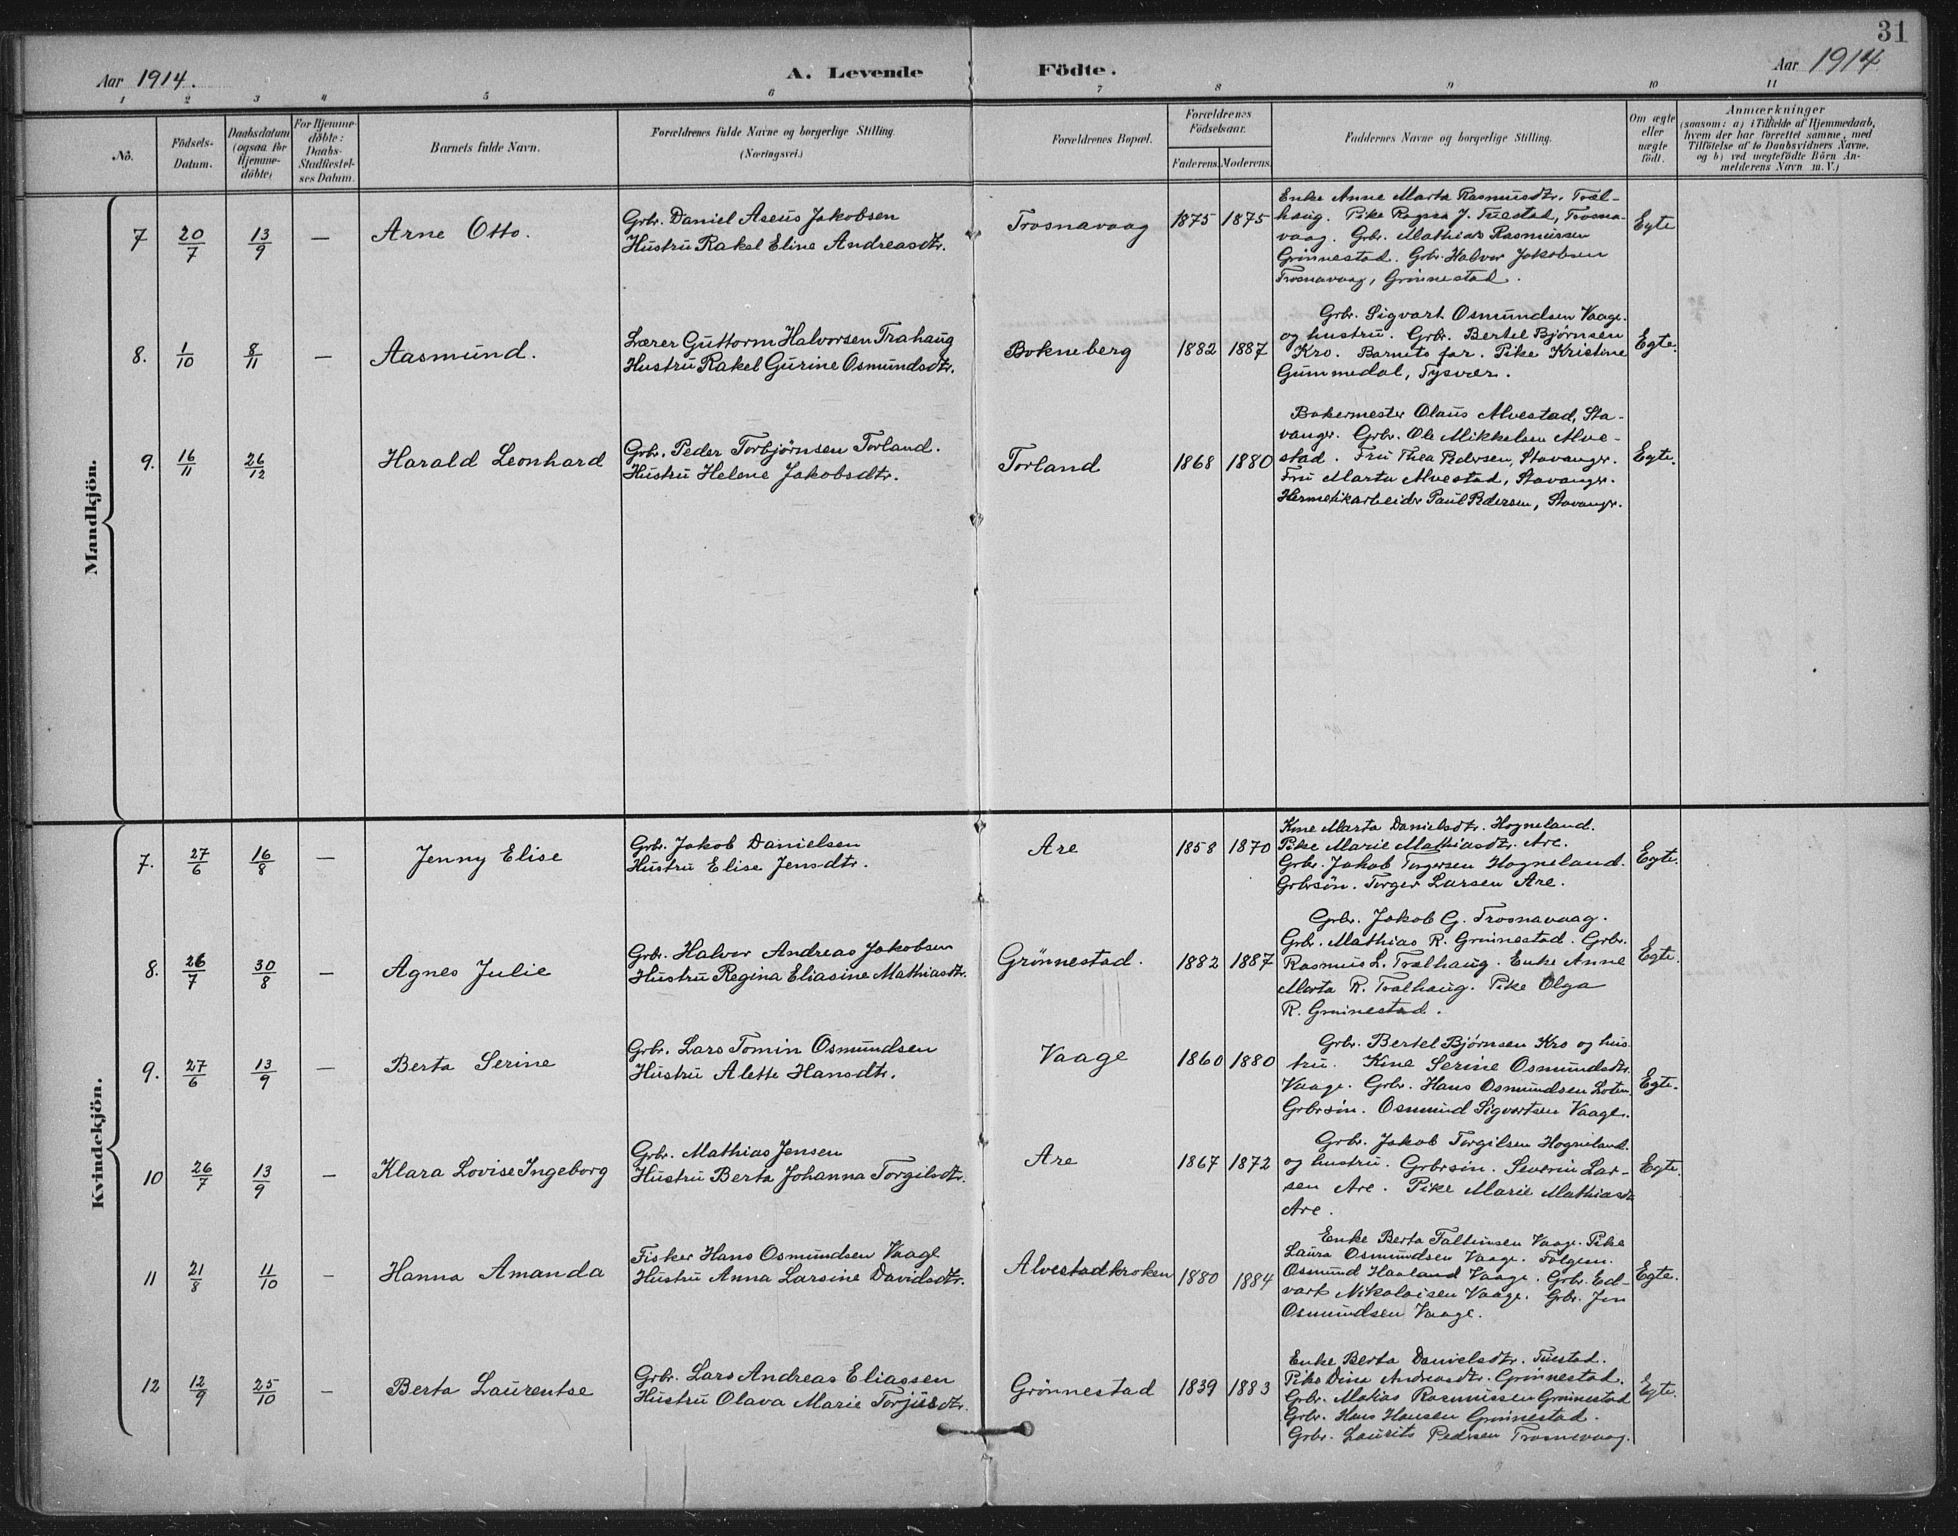 31
Aar 1914.
A. Levende Födte.
Aar 1914
1 2 3 4 5 6 7 8 9 10 11
No.
Födsels-
Datum.
Daabsdatum
(ogsaa for
Hjemme-
døbte)
For Hjemme-
döbte:
Daabs-
Stadfæstel-
ses Datum.
Barnets fulde Navn.
Forældrenes fulde Navne og borgerlige Stilling.
(Næringsvei.)
Forældrenes Bopæl.
Forældrenes
Födselsaar.
Faderens. Moderens.
Faddernes Navne og borgerlige Stilling.
Om ægte
eller
uægte
födt.
Anmærkninger
(saasom: a) i Tilfælde af Hjemmedaab,
hvem der har forrettet samme, med
Tilföielse af to Daabsvidners Navne,
og b) ved uegtefödte Börn An-
melderens Navn m. V.)
Mandkjön.
7 20/7 13/9 — Arne Otto.
Grbr. Daniel Aseus Jakobsen
Hustru Rakel Eline Andreasdtr.
Trosnavaag 1875 1875
Enke Anne Marta Rasmusdtr. Træl-
haug. Pike Ragna J. Tuestad, Trosna-
vaag. Grbr. Mathias Rasmussen
Grönnestad. Grbr. Halvor Jakobsen
Trosnavaag, Grönnestad.
Egte
8. 1/10 8/11 — Aasmund.
Lærer Guttorm Halvorsen Trahaug
Hustru Rakel Gurine Osmundsdtr.
Bokneberg 1882 1887
Grbr. Sigvart Osmundsen Vaage
og hustru. Grbr. Bertel Bjørnsen
Kro. Barnets far. Pike Kristine
Gummedal, Tysvær.
Egte.
9. 16/11 26/12 Harald Leonhard
Grbr. Peder Torbjörnsen Torland.
Hustru Helene Jakobsdtr.
Torland 1868 1880
Bakermester Olaus Alvestad, Sta-
vanger. Grbr. Ole Mikkelsen Alve-
stad. Fru Thea Pedersen, Stavanger.
Fru Marta Alvestad, Stavanger.
Hermetikarbeider Paul Pedersen, Stavanger.
Egte.
Kvindekjön.
7. 27/6 16/8 — Jenny Elise
Grbr. Jakob Danielsen
Hustru Elise Jensdtr.
Are 1858 1870
Kone Marta Danielsdtr. Hogneland.
Pike Marie Mathiasdtr. Are.
Grbr. Jakob Torgersen Hogneland.
Grbrsön. Torger Larsen Are.
Egte.
8. 26/7 30/8 — Agnes Julie
Grbr. Halvor Andreas Jakobsen
Hustru Regina Eliasine Mathiasdtr.
Grönnestad. 1882 1887
Grbr. Jakob G. Trosnavaag.
Grbr. Mathias R. Grönnestad. Grbr.
Rasmus L. Trælhaug. Enke Anne
Marta R. Trælhaug. Pike Olga
R. Grönnestad.
Egte.
9. 27/6 13/9 — Berta Serine
Grbr. Lars Tomin Osmundsen
Hustru Alette Hansdtr.
Vaage 1860 1880
Grbr. Bertel Bjørnsen Kro og hus-
tru. Kone Serine Osmundsdtr.
Vaage. Grbr. Hans Osmundsen Loten.
Grbrsön. Osmund Sigvartsen Vaage.
Egte.
10 26/7 13/9 — Klara Lovise Ingeborg
Grbr. Mathias Jensen
Hustru Berta Johanna Torgilsdtr.
Are 1867 1872
Grbr. Jakob Torgilsen Hogneland.
og hustru. Grbrsön. Severin Lar-
sen Are. Pike Marie Mathiasdtr.
Are.
Egte.
11 21/8 11/10 — Hanna Amanda
Fisker Hans Osmundsen Vaage
Hustru Anna Larsine Davidsdtr.
Alvestadkroken 1880 1884
Enke Berta Taltinsen Vaage. Pike
Laura Osmundsen Vaage.
Osmund Haaland Vaage. Grbr. Ed-
vart Nikolaisen Vaage. Grbr. Jon
Osmundsen Vaage.
Egte.
12 12/9 25/10 — Berta Laurentse
Grbr. Lars Andreas Eliassen
Hustru Olava Marie Torjusdtr.
Grönnestad 1839 1883
Enke Berta Danielsdtr. Tuestad.
Pike Dine Andreasdtr. Grönnestad.
Grbr. Matias Rasmussen Grönnestad
Grbr. Hans Hansen Grönnestad.
Grbr. Laurits Pedersen Trosnevaag.
Egte.